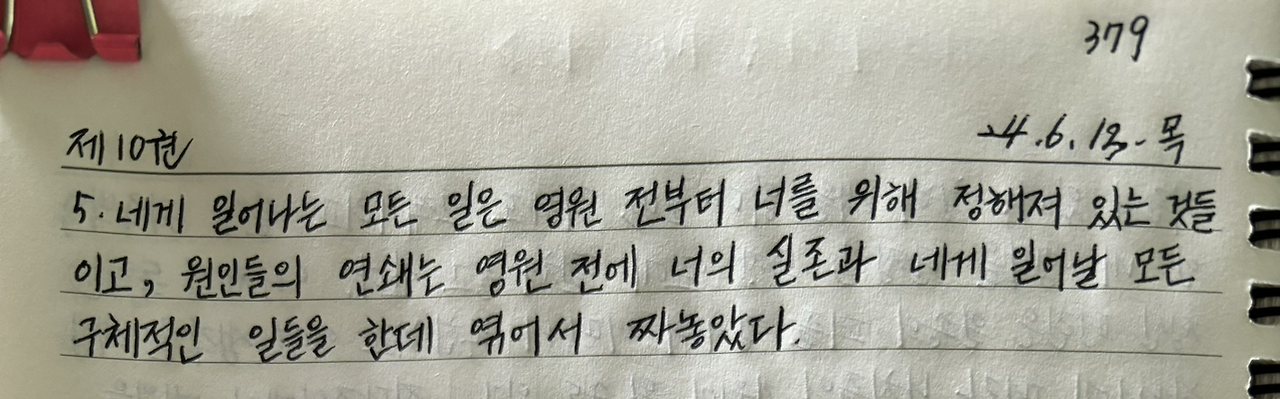 379
제10권
24.6.13. 목
5. 네게 일어나는 모든 일은 영원 전부터 너를 위해 정해져 있는 것들
이고, 원인들의 연쇄는 영원 전에 너의 실존과 네게 일어날 모든
구체적인 일들을 한데 엮어서 짜놓았다.